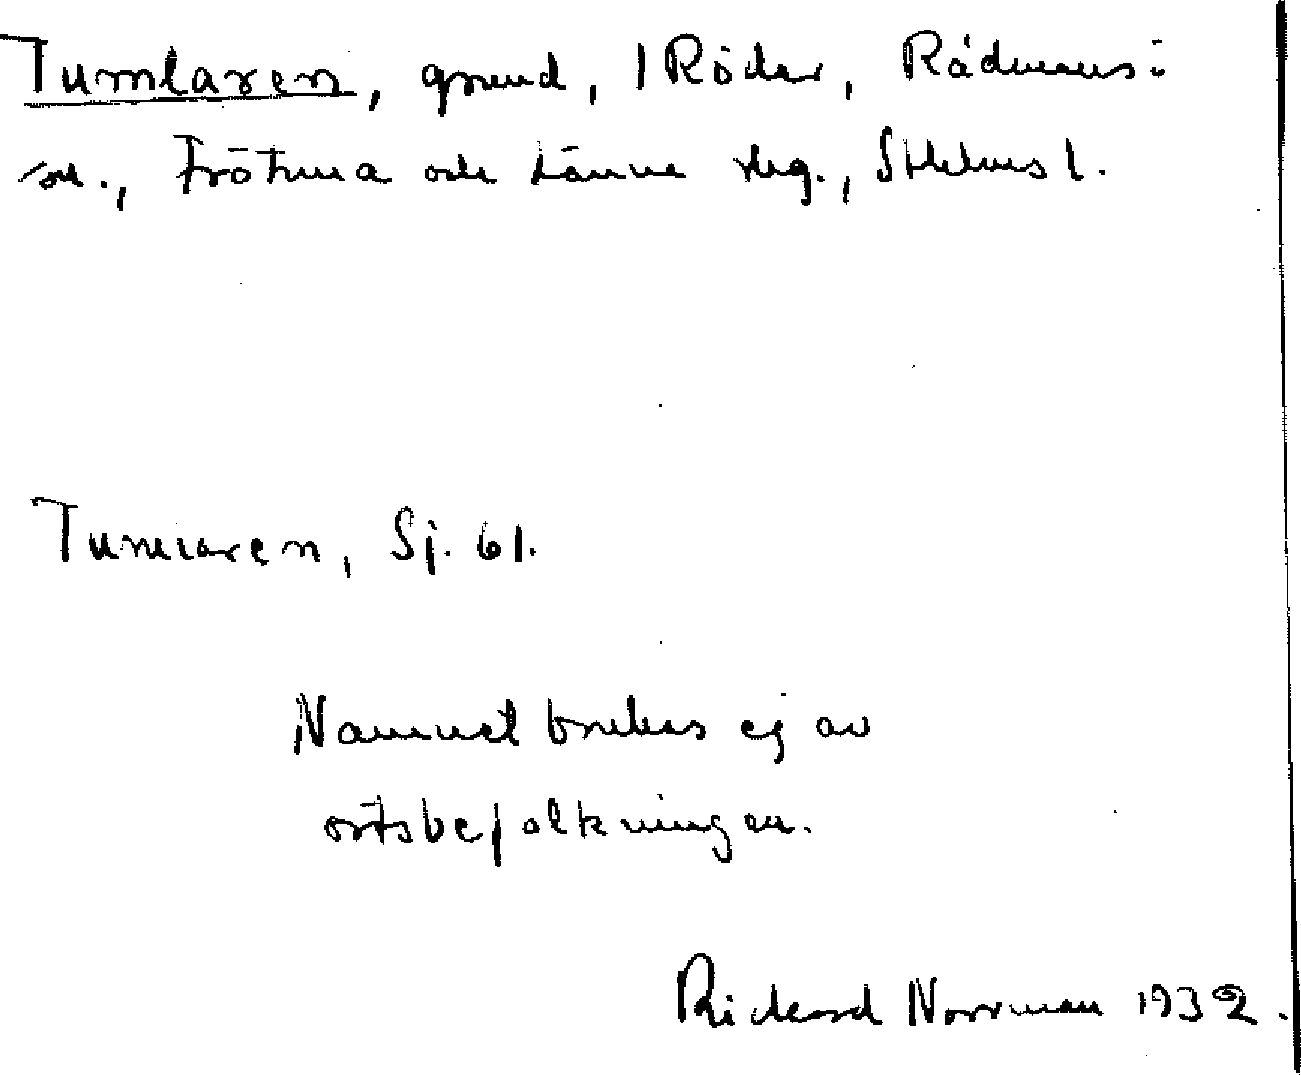 Tumlaren, grund, I Röder, Rådmansö
sn., Frötuna och Länna skg., Sthlms l.
Tumlaren, Sj. 61.
Namnet brukas ej av
ortsbefolkningen.
Rickard Norrman 1932.